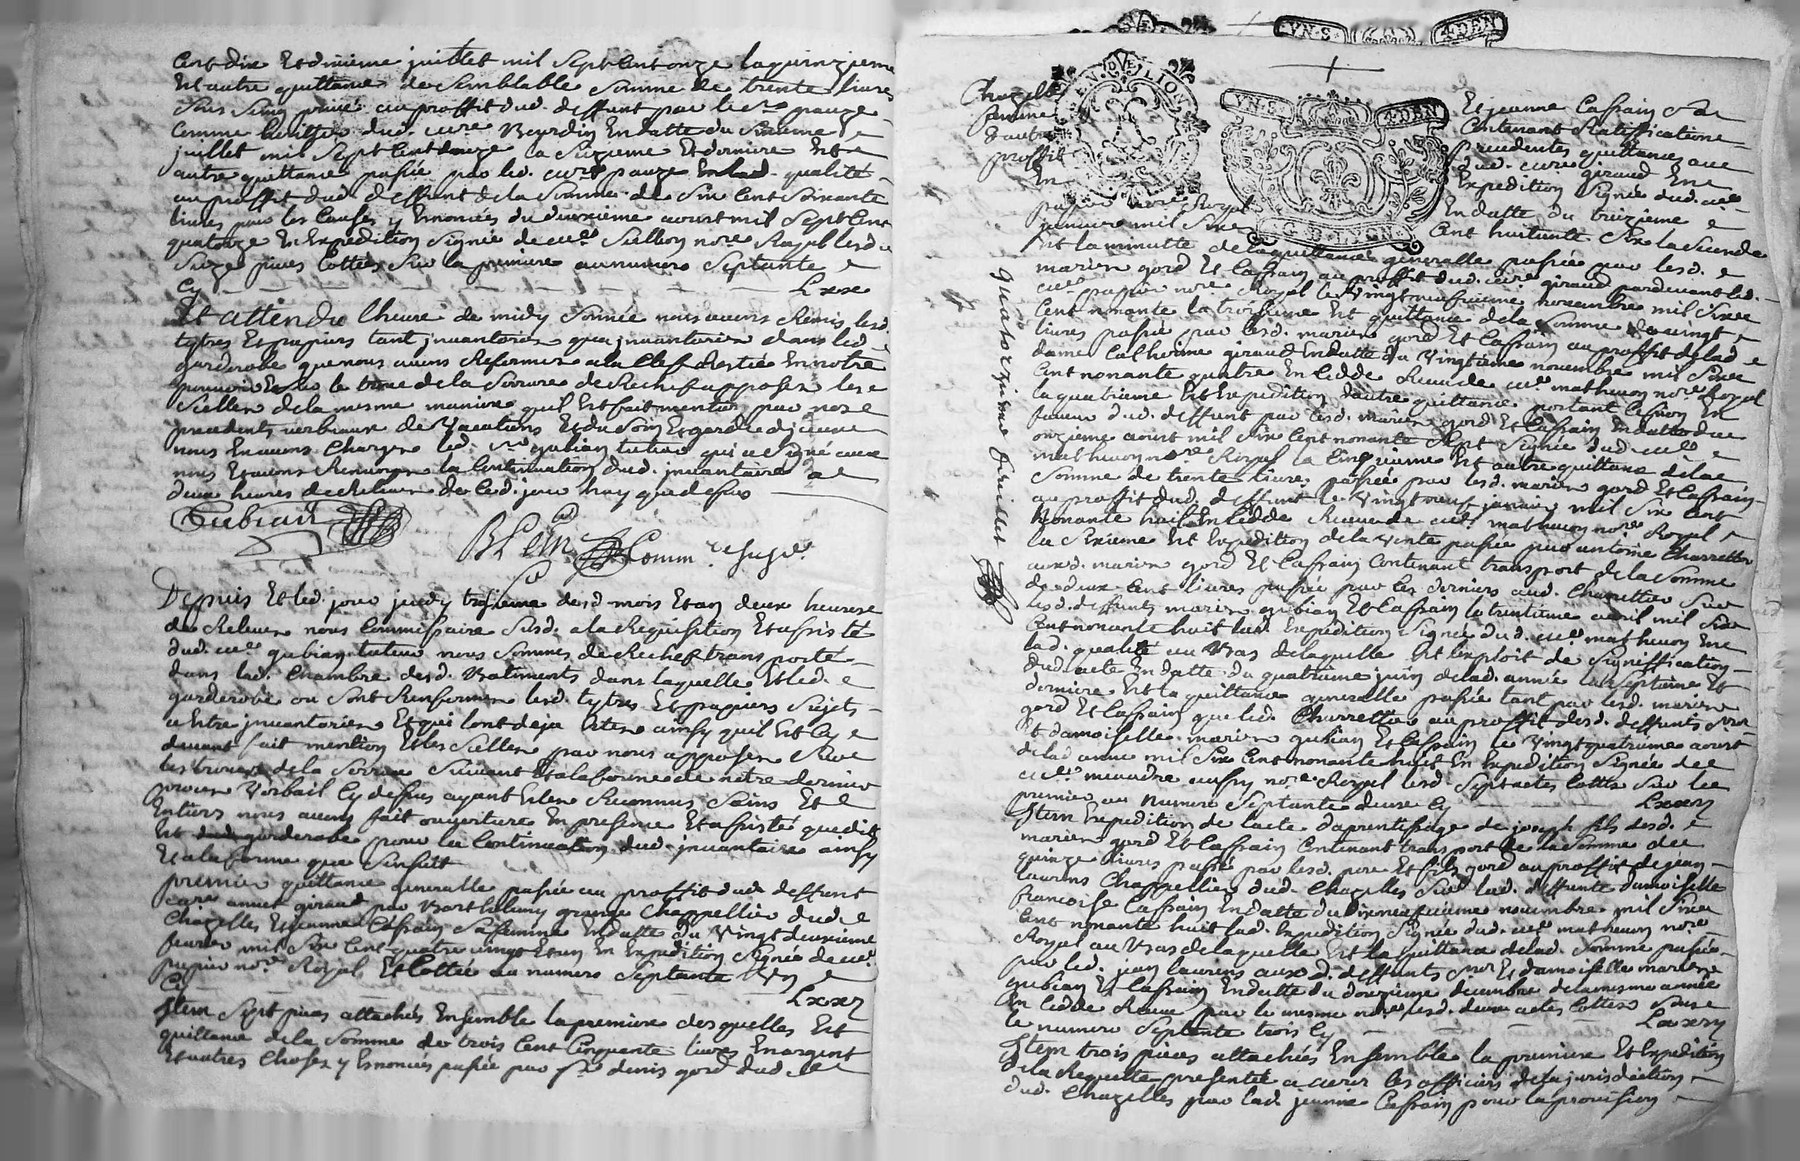 Cent dix Et dixieme juillet mil Sept Cent onze la quinzieme
Est autre quittance de Semblable Somme de trente livres
Sous Seing privé au proffit dud. deffunt par le Sr pauze
Comme heritier dud. curé Bourdin En datte du Sixieme
juillet mil Sept Cent douze la Sezieme Et derniere Est
autre quittance passée par led. curé pauze En lad. qualité
au proffit dud. deffunt de la Somme de Six Cent Soixante
livres pour les Causes y Enoncées du deuxieme aoust mil Sept Cent
quatorze En Expedition Signée de me. nore. Royal lesd.
Seize pieces Cottées Sur la premiere au numero Septante
Cy Lxx
Et attendu lheure de midy Sonnée nous avons Remis lesd.
tytres Et papiers tant jnvantories qua jnvantorier dans led.
garderobe que nous avons Refermer a la Clef Restée En notre
pouvoir Et Sur le trou de la Serrure de Rechef apposer les
Scellez de la mesme maniere quil Est fait mention par nos
precedents verbeaux de Vacations Et du Soin Et garde diceux
nous En avons Charger led. Sr qubian tuteur qui a Signé avec
nous Et avons Renvoyer la Continuation dud. jnvantaire a
deux heures de Relevee de Ced. jour huy que dessus
Cubian
BLein Commre Juge
Depuis Et led. jour jeudy troisieme desd mois Et an deux heures
de Relevee nous Commissaire Susd. a la Requisition Et assisté
dud. me. qubian tuteur nous Sommes de Rechef transporté
dans lad. Chambre desd. Batiments dans laquelle Est led.
garderobe ou Sont Renfermer lesd. tytres Et papiers Sujets
a Estre jnvantories Et qui Lont deja Estes ainsy quil Est Cy
devant fait mention Et les Scellez par nous apposer Sur
les trous de la Serrure Suivant Et a la forme de nôtre dernier
procez Verbail Cy dessus ayant Estes Reconnus Sains Et
Entiers nous avons fait ouverture En presence Et assisté que dit
Est garderobe pour la Continuation dud. jnvantaire ainsy
Et a la forme que Sensuit
premier quittance generalle passée au proffit dud. deffunt
curé annet giraud par Barthelemy granges Chappellier dud.
Chazelles Et jeanne Cassrain Sa femme En datte du Vingt deuxieme
fevrier mil Six Cent quatre vingt Et un En Expedition Signée de me.
papier nore. Royal Et Cottée au numero Septante Un
Cy Lxxj
Jtem Sept pieces attachés Ensemble la premiere desquelles Est
quittance de la Somme de trois Cent Cinquante livres En argent
Et autres Choses y Enoncées passée par Sr denis gord dud.
YN.S. 4DEN
GEN. DE LION
YN.S. 4DEN
G.D.LYON
Chazelles Et jeanne Cassrain Sa
femme Contenant Ratiffication
Precedentes quittances aux
proffit dud. curé giraud En
En Expedition Signée dud. me.
papier nore. Royal En datte du treizieme
janvier mil Six Cent huitante Six la Seconde
Est la minutte de la quittance generalle passée par lesd.
mariez gord Et Cassrain au proffit dud. curé giraud pardevant led.
me. papier nore. Royal le Vingt neufvieme novembre mil Six
Cent nonante la troisieme Est quittance de la Somme de vingt
livres passée par lesd. mariez gord Et Cassrain au proffit de lad.
dame Catherine giraud En datte du Vingtieme novembre mil Six
Cent nonante quatre En Cedde Receüe de me. mathevon nore. Royal
la quatrieme Est Expedition dautre quittance portant Cession En
faveur dud. deffunt par lesd. mariez gord Et Cassrain En datte du
onzieme aoust mil Six Cent nonante Sept Signée dud. me.
mathevon nore. Royal la Cinquieme Est autre quittance de la
Somme de trente livres passée par lesd. mariez gord Et Cassrain
au proffit dud. deffunt le Vingt neuf janvier mil Six Cent
Nonante huit En Cedde Receüe de me. mathevon nore. Royal
la Sixieme Est Expedition de la Vente passée par antoine Charretier
auxd. mariez gord Et Cassrain Contenant transport de la Somme
de deux Cent livres passée par les derniers aud. Charretier Sur
lesd. deffunts mariez qubian Et Cassrain le trentieme avril mil Six
Cent nonante huit lad. Expedition Signée dud. me. mathevon En
lad. qualité au Bas de laquelle Est lexploit de Signiffication
dud. acte En datte du quatrieme juin de lad. année la Septieme Et
derniere Est la quittance generalle passée tant par lesd. mariez
gord Et Cassrain que led. Charretier au proffit desd. deffunts Sieur
Et damoiselle mariez qubian Et Cassrain le Vingt quatrieme aoust
de lad. année mil Six Cent nonante huit En Expedition Signée de
me. nore. Royal lesd. Sept actes Cottes Sur le
premier au Numero Septante deux Cy Lxxij
Jtem Expedition de lacte daprentissage de joseph fils desd.
mariez gord Et Cassrain Contenant transport de la Somme de
quinze livres passé par lesd. pere Et fils gord au proffit de jean
laurens Chappellier dud. Chazelles Sur lad. deffunte damoiselle
francoise Cassrain En datte du dixneufvieme novembre mil Six
Cent nonante huit lad. Expedition Signée dud. me. mathevon nore.
Royal au Bas de laquelle Est la quittance de lad. Somme passée
par led. jean laurens auxd. deffunts Sieur Et damoiselle mariez
qubian Et Cassrain En datte du douzieme decembre de la mesme année
En Cedde Receue par le mesme nore. lesd. deux actes Cottes Sous
le numero Septante trois Cy Lxxiij
Jtem trois pieces attachées Ensemble la premiere Est Expedition
de la Requette presentée a Messrs les officiers de la jurisdiction
dud. Chazelles par lad. jeanne Cassrain pour la provision
quatorzieme feuillet